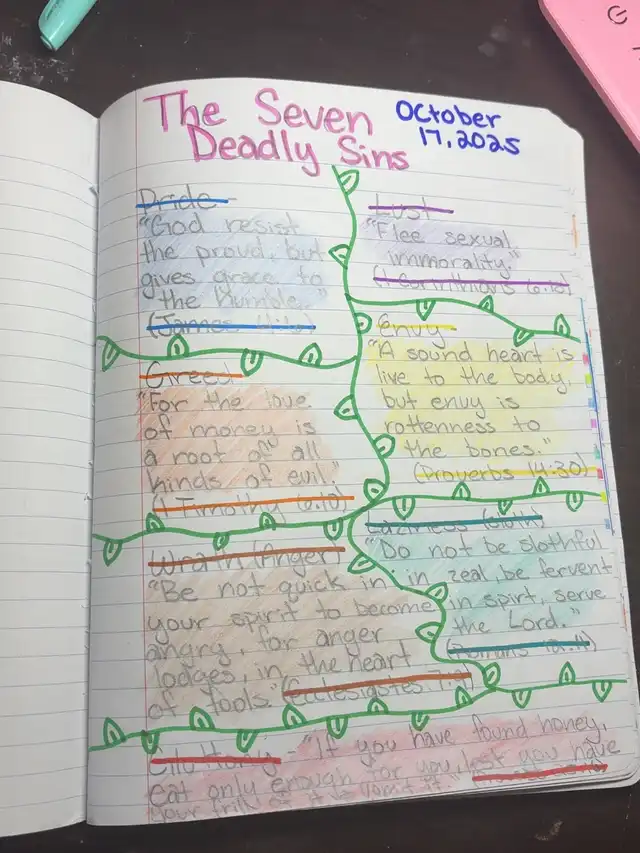 The Seven
Deadly Sins
October
17, 2025
Pride
"God resist
the proud, but
gives grace to
the humble."
(James 4:6)
Lust
"Flee sexual
immorality."
(1 Corinthians 6:18)
Greed
"For the love
of money is
a root of all
kinds of evil."
(1 Timothy 6:10)
Envy
"A sound heart is
live to the body,
but envy is
rottenness to
the bones."
(Proverbs 14:30)
Wrath (Anger)
"Be not quick in
your spirit to become
angry, for anger
lodges, in the heart
of fools." (Ecclesiastes 7:9)
Laziness (Sloth)
"Do not be slothful
in zeal, be fervent
in spirt, serve
the Lord."
(Romans 12:11)
Gluttony - "If you have found honey,
eat only enough for you, lest you have
your fill of it & vomit it."